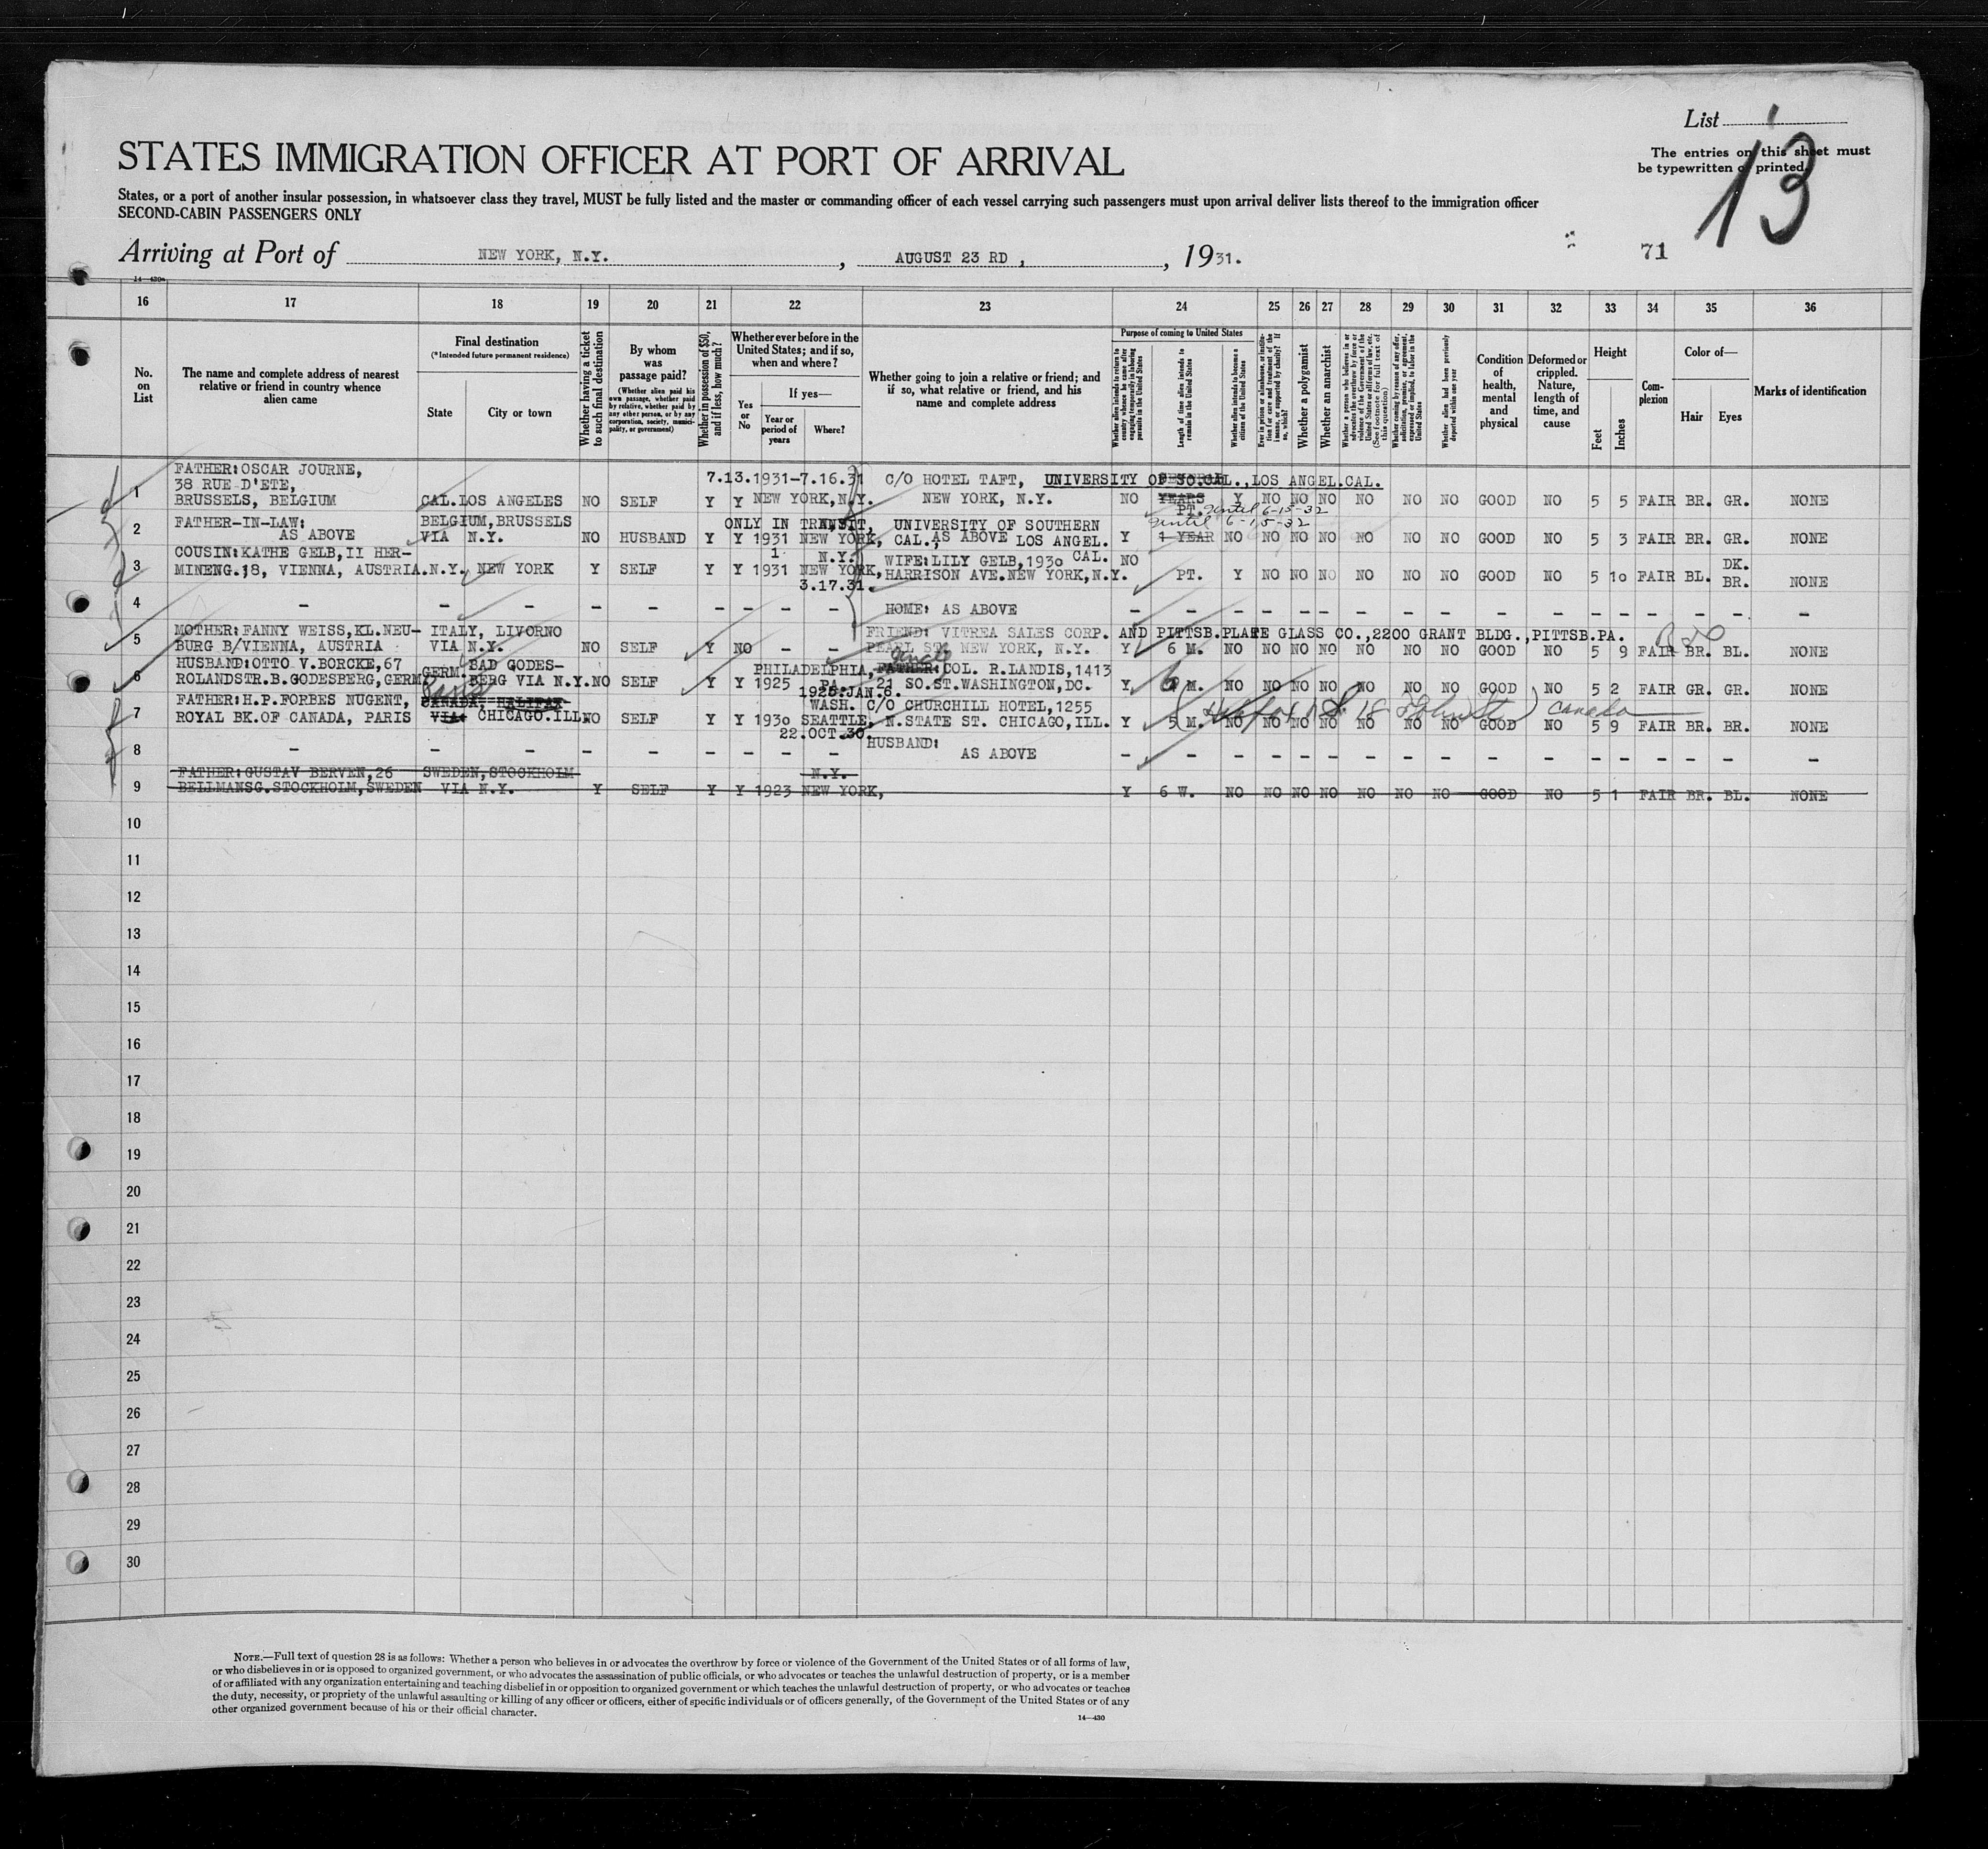 List
1
13
The entries on this sheet must
be typewritten or printed.
STATES IMMIGRATION OFFICER AT PORT OF ARRIVAL
States, or a port of another insular possession, in whatsoever class they travel, MUST be fully listed and the master or commanding officer of each vessel carrying such passengers must upon arrival deliver lists thereof to the immigration officer
SECOND-CABIN PASSENGERS ONLY
Arriving at Port of NEW YORK, N.Y. , AUGUST 23 RD , , 1931.
71
14-430a
16 17 18 19 20 21 22 23 24 25 26 27 28 29 30 31 32 33 34 35 36
No. on List
The name and complete address of nearest relative or friend in country whence alien came
Final destination
(*Intended future permanent residence)
State
City or town
Whether having a ticket to such final destination
By whom was passage paid?
(Whether alien paid his own passage, whether paid by relative, whether paid by any other person, or by any corporation, society, municipality, or government)
Whether in possession of $50, and if less, how much?
Whether ever before in the United States; and if so, when and where?
Yes or No
If yes—
Year or period of years
Where?
Whether going to join a relative or friend; and if so, what relative or friend, and his name and complete address
Purpose of coming to United States
Whether alien intends to return to country whence he came after engaging temporarily in laboring pursuits in the United States
Length of time alien intends to remain in the United States
Whether alien intends to become a citizen of the United States
Ever in prison or almshouse, or institution for care and treatment of the insane, or supported by charity? If so, which?
Whether a polygamist
Whether an anarchist
Whether a person who believes in or advocates the overthrow by force or violence of the Government of the United States or all forms of law, etc. (See footnote for full text of this question)
Whether coming by reason of any offer, solicitation, promise, or agreement, expressed or implied, to labor in the United States
Whether alien had been previously deported within one year
Condition of health, mental and physical
Deformed or crippled. Nature, length of time, and cause
Height
Feet
Inches
Complexion
Color of—
Hair
Eyes
Marks of identification
FATHER:OSCAR JOURNE,
38 RUE D'ETE, 7.13.1931-7.16.31 C/O HOTEL TAFT, UNIVERSITY OF SO.CAL.,LOS ANGEL.CAL.
1 BRUSSELS, BELGIUM CAL. LOS ANGELES NO SELF Y Y NEW YORK,N.Y. NEW YORK, N.Y. NO YEARS Y NO NO NO NO NO NO GOOD NO 5 5 FAIR BR. GR. NONE
PT. until 6-15-32
FATHER-IN-LAW: BELGIUM,BRUSSELS ONLY IN TRANSIT, UNIVERSITY OF SOUTHERN until 6-15-32
2 AS ABOVE VIA N.Y. NO HUSBAND Y Y 1931 NEW YORK, CAL., AS ABOVE LOS ANGEL. Y 1 YEAR NO NO NO NO NO NO NO GOOD NO 5 3 FAIR BR. GR. NONE
COUSIN:KATHE GELB,II HER- 1 N.Y. WIFE:LILY GELB,1930 CAL. NO DK.
3 MINENG.18, VIENNA, AUSTRIA. N.Y. NEW YORK Y SELF Y Y 1931 NEW YORK, HARRISON AVE.NEW YORK,N.Y. PT. Y NO NO NO NO NO NO GOOD NO 5 10 FAIR BL. BR. NONE
3.17.31.
4 – – – – – – – – – HOME: AS ABOVE – – – – – – – – – – – – – – – – –
MOTHER:FANNY WEISS,KL.NEU- ITALY, LIVORNO FRIEND: VITREA SALES CORP. AND PITTSB.PLATE GLASS CO.,2200 GRANT BLDG.,PITTSB.PA.
5 BURG B/VIENNA, AUSTRIA VIA N.Y. NO SELF Y NO – – PEARL ST. NEW YORK, N.Y. Y 6 M. NO NO NO NO NO NO NO GOOD NO 5 9 FAIR BR. BL. NONE
HUSBAND:OTTO V.BORCKE,67 GERM. BAD GODES- PHILADELPHIA, FATHER:COL. R.LANDIS,1413
6 ROLANDSTR.B.GODESBERG,GERM. BERG VIA N.Y. NO SELF Y Y 1925 PA. 21 SO.ST.WASHINGTON,DC. Y 6 M. NO NO NO NO NO NO NO GOOD NO 5 2 FAIR GR. GR. NONE
Paris 1925.JAN.6.
FATHER:H.P.FORBES NUGENT, CANADA, HALIFAX WASH. C/O CHURCHILL HOTEL,1255 Halifax 18 John St) Canada
7 ROYAL BK.OF CANADA, PARIS VIA: CHICAGO.ILL. NO SELF Y Y 1930 SEATTLE, N.STATE ST. CHICAGO,ILL. Y 5 M. NO NO NO NO NO NO NO GOOD NO 5 9 FAIR BR. BR. NONE
22.OCT.30. HUSBAND:
8 – – – – – – – – – AS ABOVE – – – – – – – – – – – – – – – – –
FATHER:GUSTAV BERVEN,26 SWEDEN,STOCKHOLM N.Y.
9 BELLMANSG.STOCKHOLM,SWEDEN VIA N.Y. Y SELF Y Y 1923 NEW YORK, Y 6 W. NO NO NO NO NO NO NO GOOD NO 5 1 FAIR BR. BL. NONE
10
11
12
13
14
15
16
17
18
19
20
21
22
23
24
25
26
27
28
29
30
NOTE.—Full text of question 28 is as follows: Whether a person who believes in or advocates the overthrow by force or violence of the Government of the United States or of all forms of law,
or who disbelieves in or is opposed to organized government, or who advocates the assassination of public officials, or who advocates or teaches the unlawful destruction of property, or is a member
of or affiliated with any organization entertaining and teaching disbelief in or opposition to organized government or which teaches the unlawful destruction of property, or who advocates or teaches
the duty, necessity, or propriety of the unlawful assaulting or killing of any officer or officers, either of specific individuals or of officers generally, of the Government of the United States or of any
other organized government because of his or their official character.
14—430